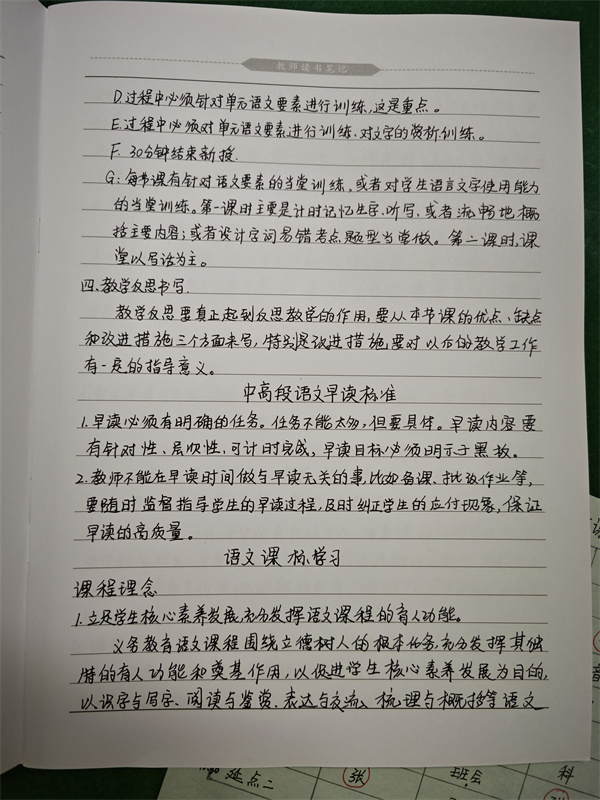 教师读书笔记
D.过程中必须针对单元语文要素进行训练,这是重点。
E.过程中必须对单元语文要素进行训练.对文字的赏析训练。
F. 30分钟结束新授.
G:每节课有针对语文要素的当堂训练,或者对学生语言文字使用能力
的当堂训练。第一课时主要是计时记忆生字.听写.或者流畅地概
括主要内容;或者设计字词易错考点题型当堂做。第二课时,课
堂以写话为主。
四.教学反思书写.
教学反思要真正起到反思教学的作用,要从本节课的优点、缺点
和改进措施三个方面来写,特别是改进措施要对以后的教学工作
有一定的指导意义。
中高段语文早读标准
1.早读必须有明确的任务。任务不能太多,但要具体。早读内容要
有针对性、层次性.可计时完成,早读目标必须明示于黑板。
2.教师不能在早读时间做与早读无关的事,比如备课、批改作业等,
要随时监督指导学生的早读过程,及时纠正学生的应付现象,保证
早读的高质量。
语文课标学习
课程理念
1.立足学生核心素养发展,充分发挥语文课程的育人功能。
义务教育语文课程围绕立德树人的根本任务,充分发挥其独
特的育人功能和奠基作用,以促进学生核心素养发展为目的,
以识字与写字、阅读与鉴赏.表达与交流、梳理与概括等语文
延点二
张
班会
科